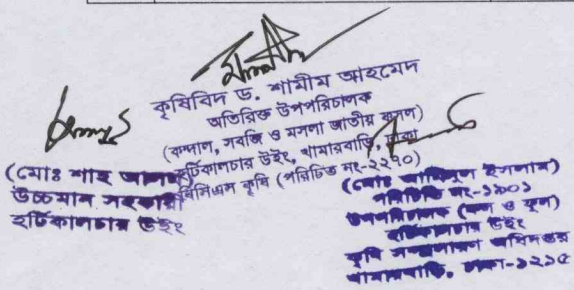 কৃষিবিদ ড. শামীম আহমেদ
অতিরিক্ত উপপরিচালক
(কন্দাল, সবজি ও মসলা জাতীয় ফসল)
হর্টিকালচার উইং, খামারবাড়ি, ঢাকা
বিসিএস কৃষি (পরিচিত নং-২২৭০)
(মোঃ শাহ আলম)
উচ্চমান সহকারী
হর্টিকালচার উইং
(মোঃ ইসলাম)
পরিচিতি নং-১৯০১
উপপরিচালক (ফল ও ফুল)
হর্টিকালচার উইং
কৃষি সম্প্রসারণ অধিদপ্তর
খামারবাড়ি, ঢাকা-১২১৫